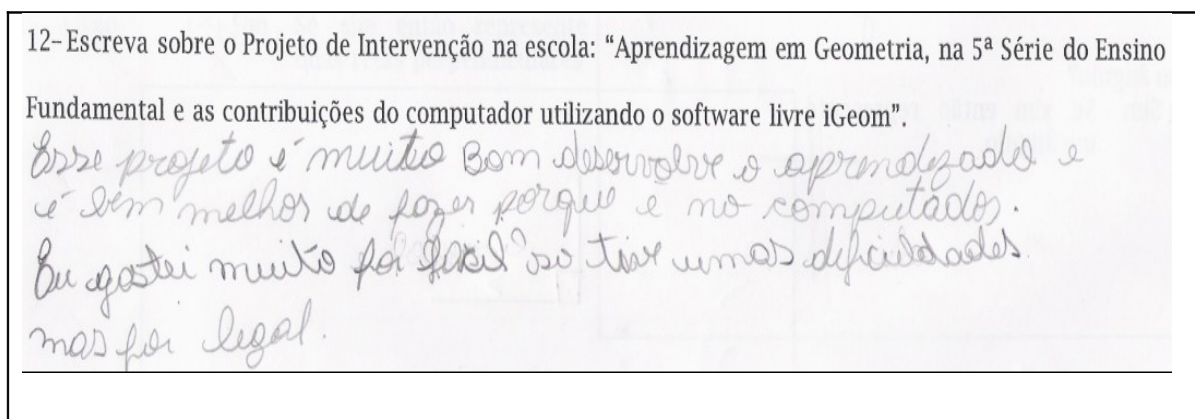 12-Escreva sobre o Projeto de Intervenção na escola: “Aprendizagem em Geometria, na 5ª Série do Ensino
Fundamental e as contribuições do computador utilizando o software livre iGeom”.
Esse projeto é muito Bom desenvolve o aprendizado e
é bem melhor de fazer porque e no computador.
Eu gostei muito foi facil só tive umas dificuldades
mas foi legal.